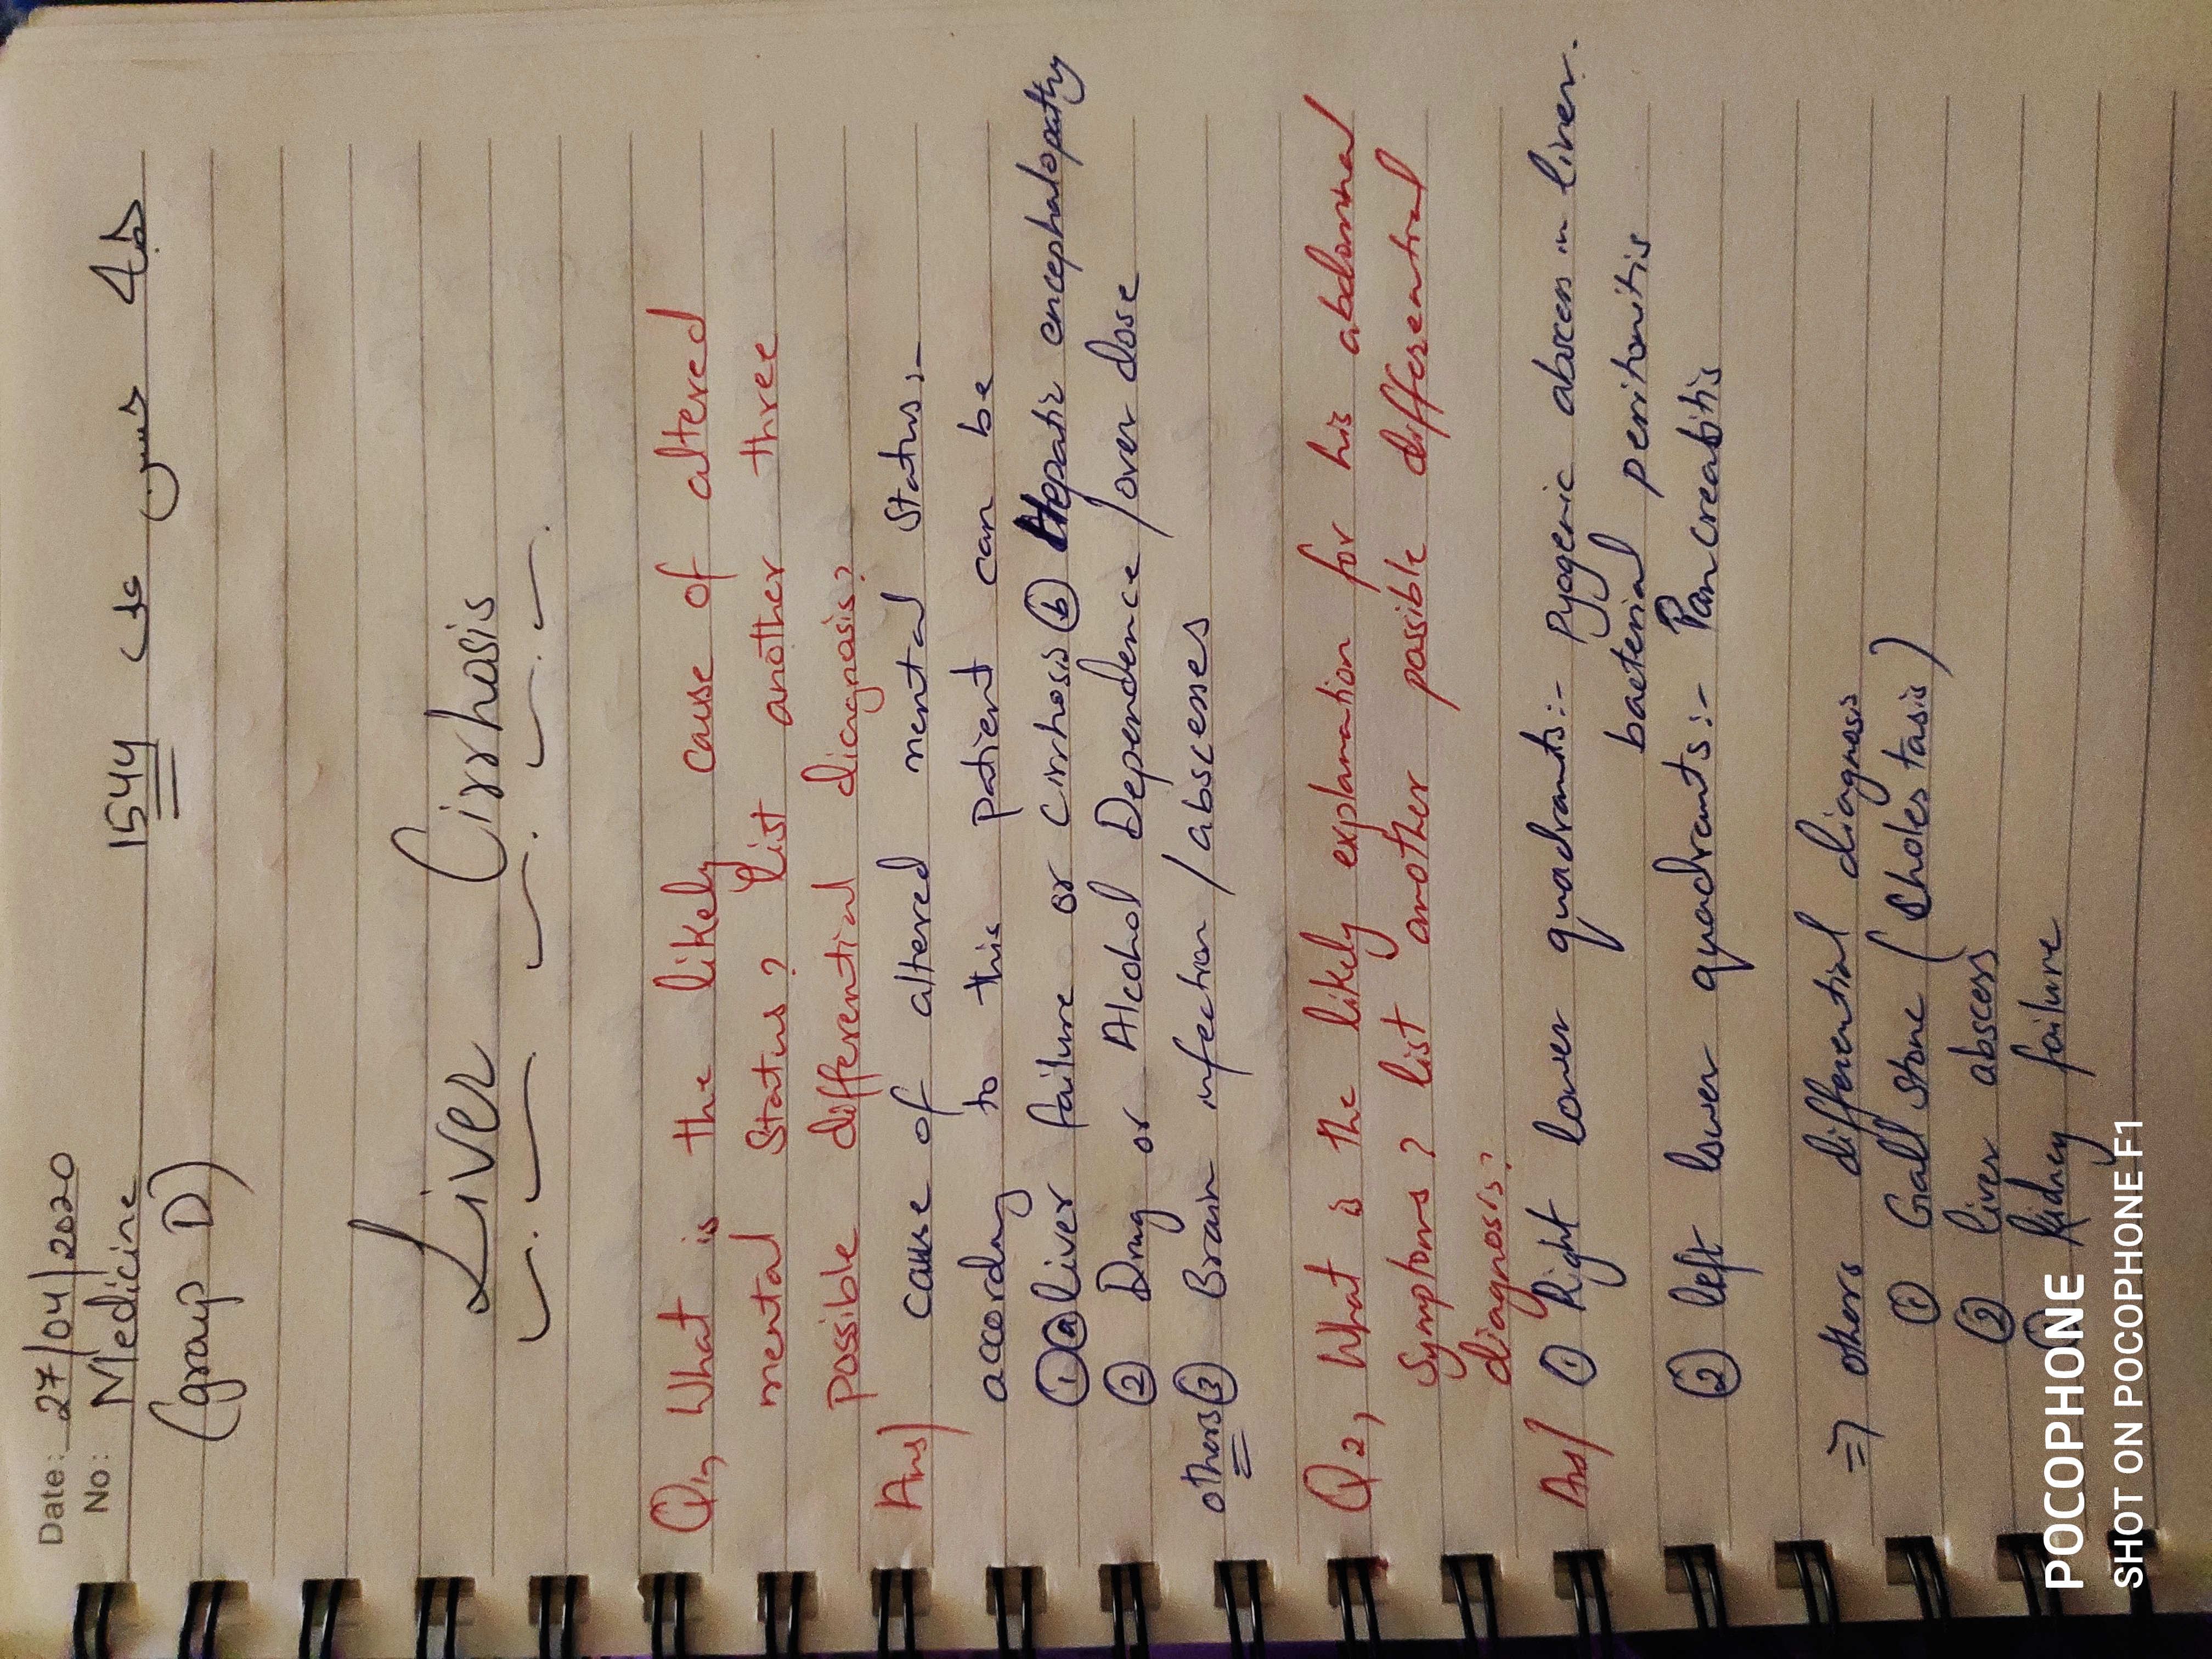 Date: 27/04/2020
No: Medicine 1544
(group D)
Liver Cirrhosis
Q1, What is the likely cause of altered
mental status? List another three
possible differential diagnosis?
Ans) cause of altered mental status:-
according to this patient can be
① ⓐ liver failure or cirrhosis ⓑ Hepatic encephalopathy
② Drug or Alcohol Dependence / over dose
others ③ Brain infection / abscesses
Q2, What is the likely explanation for his abdominal
symptoms? list another possible differential
diagnosis?
Ans/ ① Right lower quadrants:- Pyogenic abscess in liver.
bacterial peritonitis
② left lower quadrants:- Pancreabitis
=) others differential diagnosis
① Gall stone (Cholestasis)
② liver abscess
kidney failure
POCOPHONE
SHOT ON POCOPHONE F1